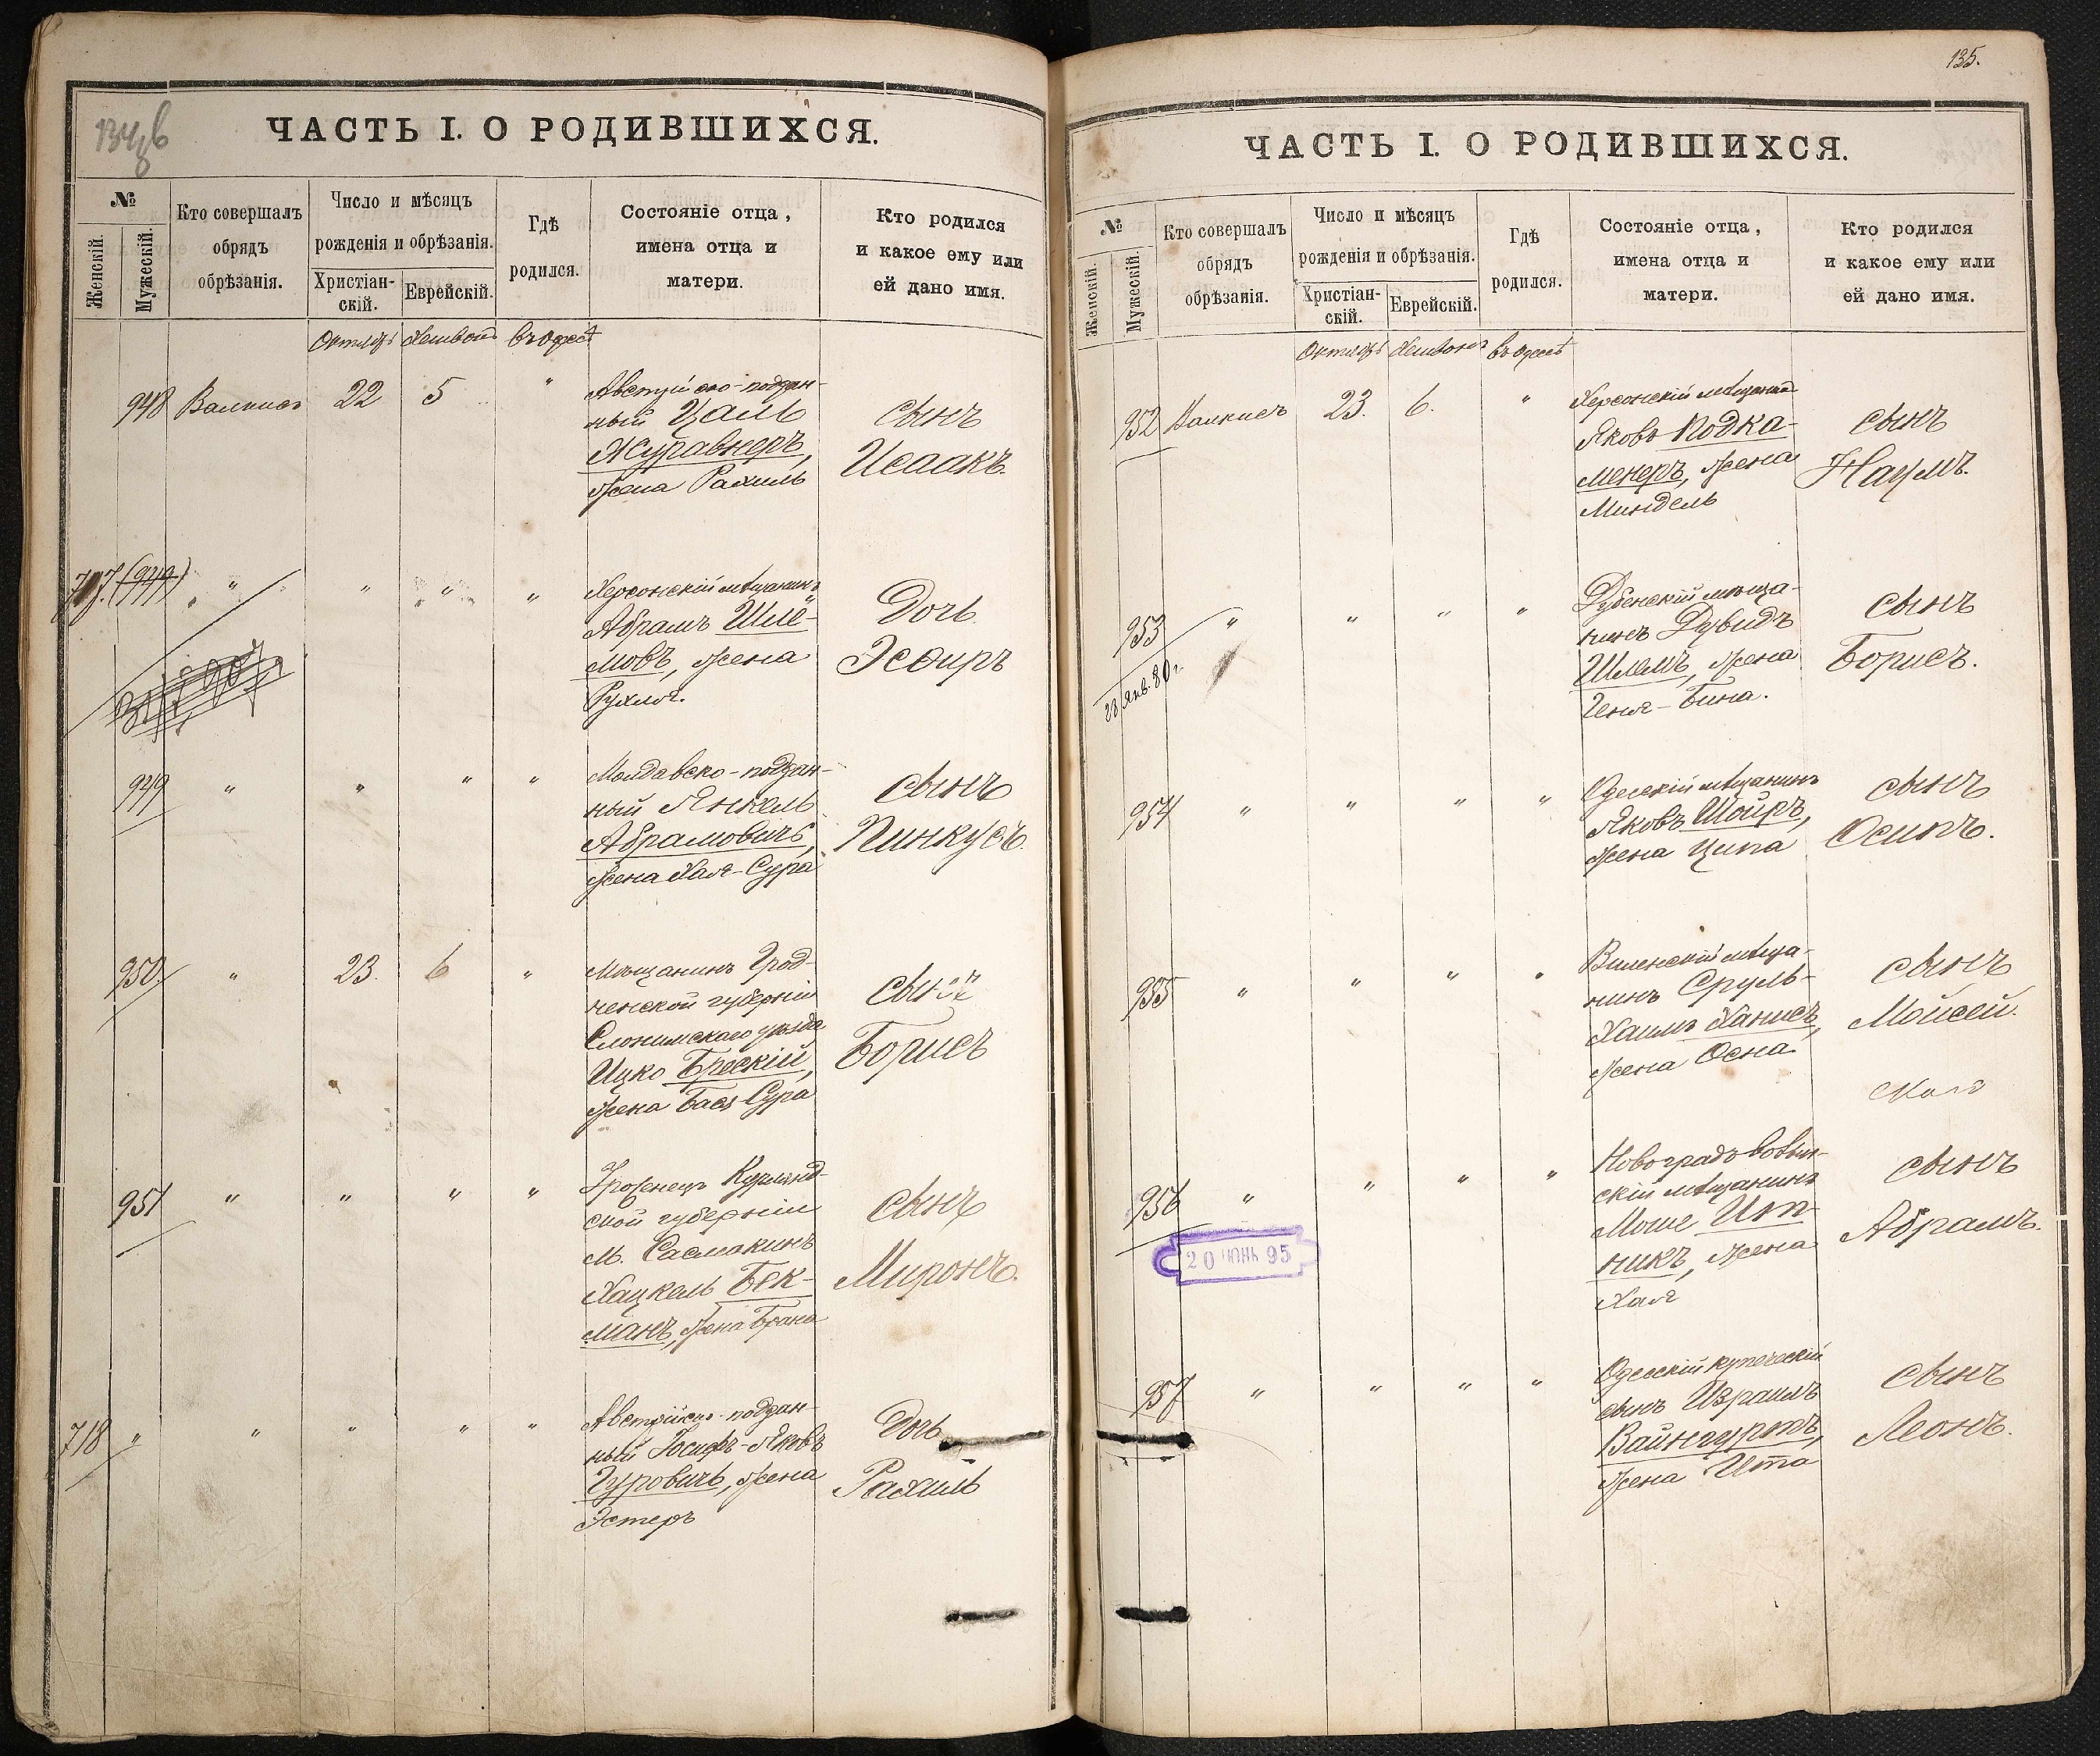 134 об
ЧАСТЬ I. О РОДИВШИХСЯ.
№
Женскій.
Мужескій.
Кто совершалъ
обрядъ
обрѣзанія.
Число и мѣсяцъ
рожденія и обрѣзанія.
Христіан-
скій.
Еврейскій.
Гдѣ
родился.
Состояніе отца,
имена отца и
матери.
Кто родился
и какое ему или
ей дано имя.
Октябрь Хешвонъ въ Одессѣ
948 Валкисъ 22 5 "
Австрійско-поддан-
ный Цаль
Журавнеръ,
жена Рахиль
сынъ
Исаакъ.
717. (949) " " " "
Херсонскій мѣщанинъ
Абрамъ Шлё-
мовъ, жена
Рухля.
Дочь
Эсѳирь
949 " " " "
Молдавско-поддан-
ный Янкель
Абрамовичъ,
жена Хая-Сура
сынъ
Пинкусъ.
950 " 23. 6 "
Мѣщанинъ Грод-
ненской губерніи
Слонимскаго уѣзда
Ицко Брескій,
жена Бася Сура
сынъ
Борисъ
951 " " " "
Уроженецъ Курлянд-
ской губерніи
м. Сасмакинъ
Хацкель Бек-
манъ, жена Брана
сынъ
Миронъ.
718 " " " " "
Австрійско-поддан-
ный Іосифъ-Яковъ
Гуровичъ, жена
Эстеръ
Дочь
Рахиль
135.
ЧАСТЬ I. О РОДИВШИХСЯ.
№
Женскій.
Мужескій.
Кто совершалъ
обрядъ
обрѣзанія.
Число и мѣсяцъ
рожденія и обрѣзанія.
Христіан-
скій.
Еврейскій.
Гдѣ
родился.
Состояніе отца,
имена отца и
матери.
Кто родился
и какое ему или
ей дано имя.
Октябрь Хешвонъ въ Одессѣ
952 Валкисъ 23. 6. "
Херсонскій мѣщанинъ
Яковъ Подка-
менеръ, жена
Миндель
сынъ
Наумъ.
953 " " " "
28 Янв. 80 г.
Дубенскій мѣща-
нинъ Дувидъ
Шлемъ, жена
Геня-Бина.
сынъ
Борисъ.
954 " " " "
Одесскій мѣщанинъ
Яковъ Шойръ,
жена Ципа
сынъ
Осипъ.
955 " " " "
Виленскій мѣща-
нинъ Сруль-
Хаимъ Ханисъ,
жена Осна
сынъ
Мойсей.
956 " " " "
20 ИЮНЬ 95
Новоградъ-волын-
скій мѣщанинъ
Моше Ит-
никъ, жена
Хая
сынъ
Абрамъ.
957 " " " "
Одесскій купеческій
сынъ Израиль
Вайнгуртъ,
жена Ита
сынъ
Леонъ.